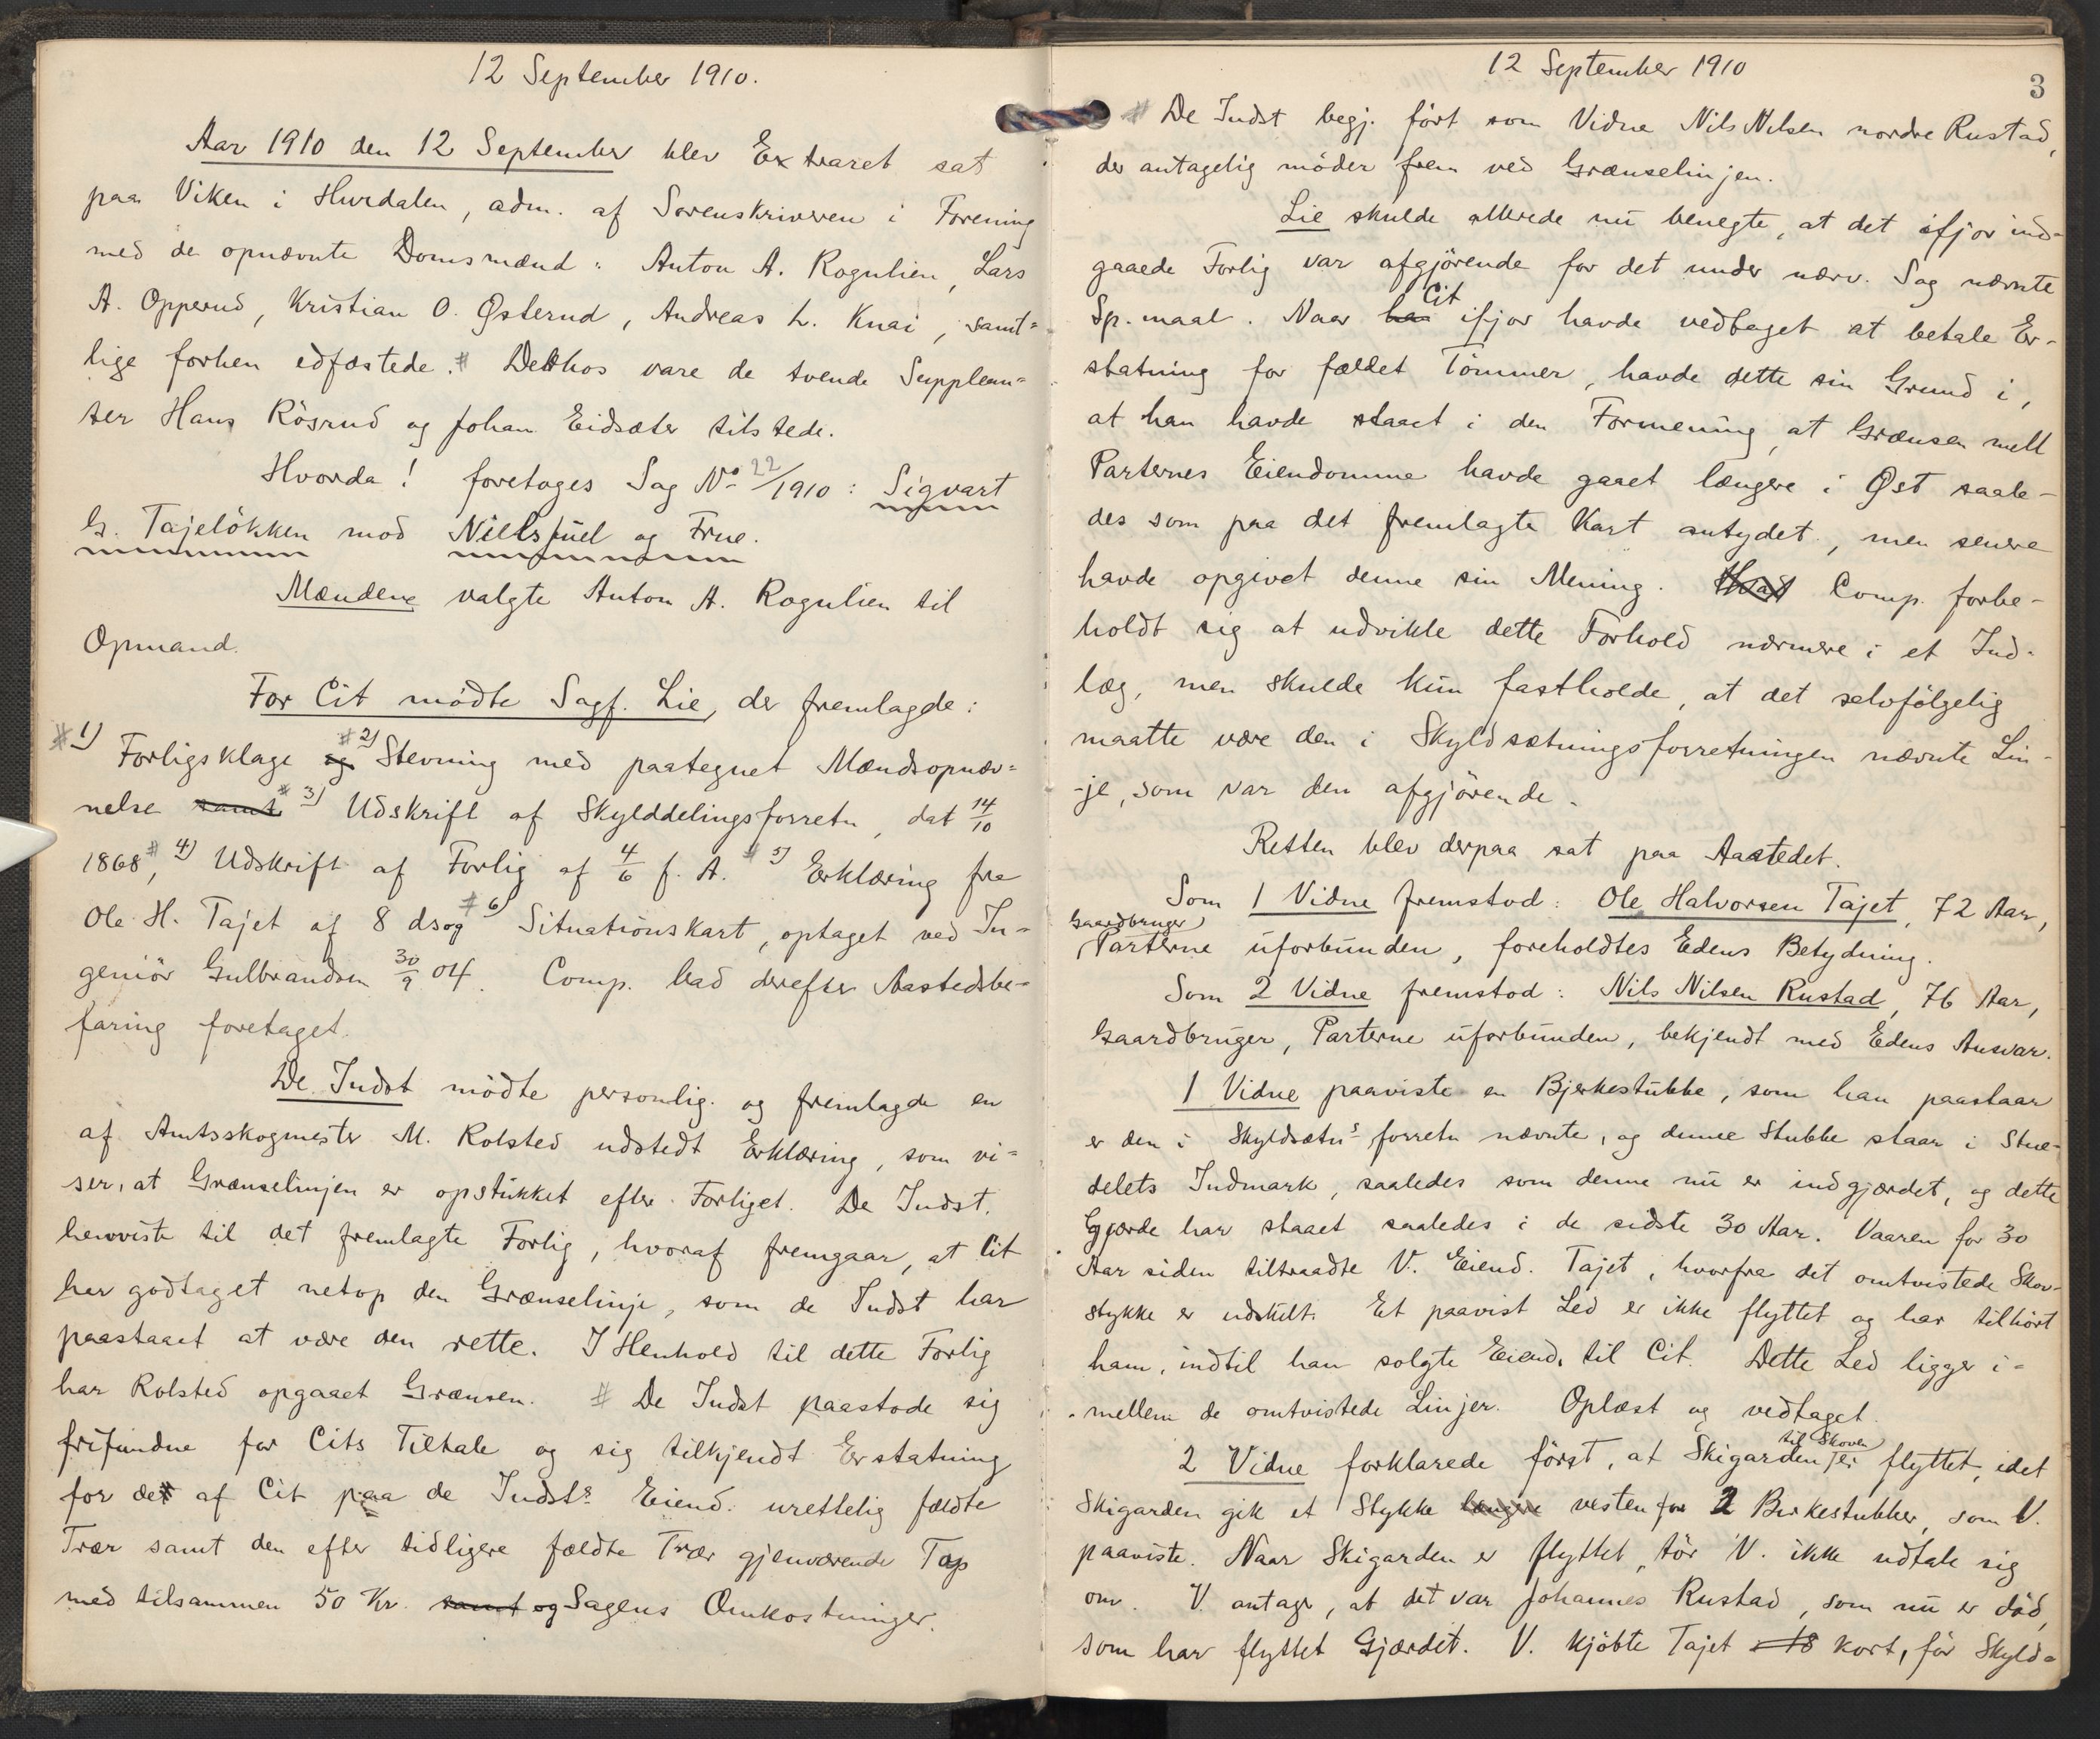 12 September 1910.
Aar 1910 den 12 September blev Extraret sat
paa Viken i Hurdalen, adm. af Sorenskriveren i Forening
med de opnævnte Domsmænd: Anton A. Rognlien, Lars
A. Opperud, Kristian O. Østerud, Andreas L. Knai, samt=
lige forhen edfæstede. # Derhos vare de tvende Supplean=
ter Hans Rösrud og Johan Eidsæter tilstede.
Hvorda! foretoges Sag No 22/1910: Sigvart
G. Tajelökken mod Niels Juel og Frue.
Mændene valgte Anton A. Rognlien til
Opmand.
For Cit mödte Sagf. Lie, der fremlagde:
# 1) Forligsklage og # 2) Stevning med paategnet Mændsopnæv=
nelse samt # 3) Udskrift af Skylddelingsforretn, dat 14/10
1868, # 4) Udskrift af Forlig af 4/6 f. A. # 5) Erklæring fra
Ole H. Tajet af 8 ds og # 6) Situationskart, optaget ved In=
geniör Gulbrandsen 30/9 04. Comp. bad derefter Aastedsbe=
faring foretaget.
De Indst mödte personlig og fremlagde en
af Amtsskogmester M. Rolsted udstedt Erklæring, som vi=
ser, at Grænselinjen er opstukket efter Forliget. De Indst.
henviste til det fremlagte Forlig, hvoraf fremgaar, at Cit
har godtaget netop den Grænselinje, som de Indst har
paastaaet at være den rette. I Henhold til dette Forlig
har Rolsted opgaaet Grænsen. # De Indst paastode sig
frifundne for Cits Tiltale og sig tilkjendt Erstatning
for de af Cit paa de Indsts Eiend. urettelig fældte
Trær samt den efter tidligere fældte Trær gjenværende Tap
med tilsammen 50 Kr. samt og Sagens Omkostninger.
12 September 1910
3
# De Indst begj. fört som Vidne Nils Nilsen nordre Rustad,
der antagelig möder frem ved Grænselinjen.
Lie skulde allerede nu benegte, at det ifjor ind-
gaaede Forlig var afgjörende for det under nærv. Sag nævnte
Sp.maal. Naar ha Cit ifjor havde vedtaget at betale Er-
statning for fældet Tömmer, havde dette sin Grund i,
at han havde staaet i den Formening, at Grænsen mell
Parternes Eiendomme havde gaaet længere i Øst saale-
des som paa det fremlagte Kart antydet, men senere
havde opgivet denne sin Mening. Hvad Comp. forbe-
holdt sig at udvikle dette Forhold nærmere i et Ind-
læg, men skulde kun fastholde, at det selvfölgelig
maatte være den i Skyldsætningsforretningen nævnte Lin-
-je, som var den afgjörende.
Retten blev derpaa sat paa Aastedet.
Som 1 Vidne fremstod: Ole Halvorsen Tajet, 72 Aar,
Gaardbruger, Parterne uforbunden, foreholdtes Edens Betydning.
Som 2 Vidne fremstod: Nils Nilsen Rustad, 76 Aar,
Gaardbruger, Parterne uforbunden, bekjendt med Edens Ansvar.
1 Vidne paaviste en Bjerkestubbe, som han paastaar
er den i Skyldsætns forretn nævnte, og denne Stubbe staar i Stue-
delets Indmark, saaledes som denne nu er indgjærdet, og dette
Gjærde har staaet saaledes i de sidste 30 Aar. Vaaren for 30
Aar siden tiltraadte V. Eiend. Tajet, hvorfra det omtvistede Skov-
stykke er udskilt. Et paavist Led er ikke flyttet og har tilhört
ham, indtil han solgte Eiend. til Cit. Dette Led ligger i-
mellem de omtvistede Linjer. Oplæst og vedtaget.
2 Vidne forklarede först, at Skigarden til Skoven er flyttet, idet
Skigarden gik et Stykke længere vesten for 2 Birkestubber, som V.
paaviste. Naar Skigarden er flyttet, tör V. ikke udtale sig
om. V. antager, at det var Johannes Rustad, som nu er död,
som har flyttet Gjærdet. V. kjöbte Tajet 18 kort, för Skyld=